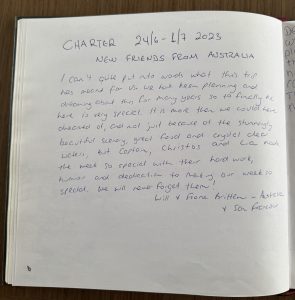 CHARTER 24/6 - 1/7 2023
NEW FRIENDS FROM AUSTRALIA
I can't quite put into words what this trip
has meant for us. We have been planning and
dreaming about this for many years so to finally be
here is very special. It is more than we could have
dreamed of, and not just because of the stunningly
beautiful scenery, great food and crystal clear
waters, but Captain, Christos and Lia made
the week so special with their hard work,
humor and dedication to making our week so
special. We will never forget them!
Will & Fiona Britten - Australia
& San Francisco